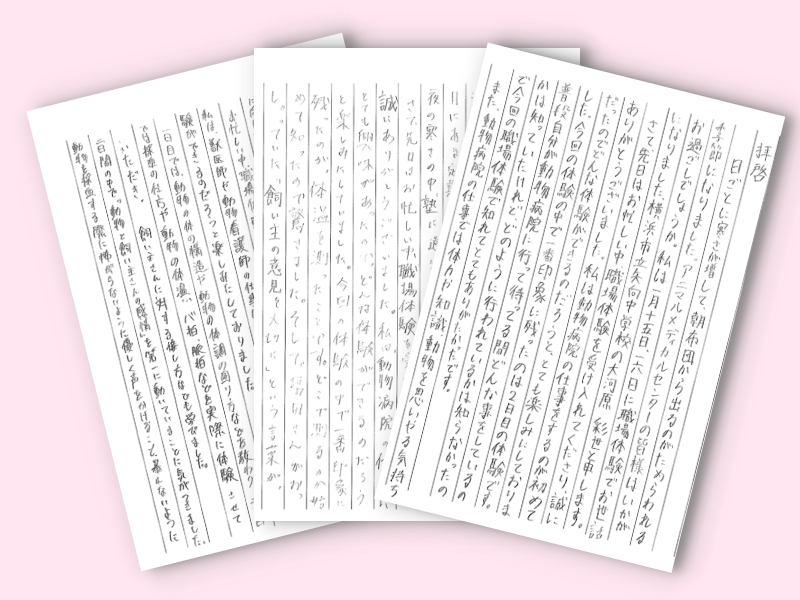 拝啓
日ごとに寒さが増して、朝布団から出るのがためらわれる
季節になりました。アニマルメディカルセンターの皆様はいかが
お過ごしでしょうか。私は一月十五日、十六日に職場体験でお世話
になりました横浜市立矢向中学校の大河原 彩世と申します。
さて先日はお忙しい中、職場体験を受け入れてくださり、誠に
ありがとうございました。私は動物病院の仕事をするのが初めて
だったのでどんな体験ができるのだろうと、とても楽しみにしておりま
した。今回の体験の中で一番印象に残ったのは2日目の体験です。
普段自分が動物病院に行って待ってる間どんな事をしているの
かは知っていたけれど、どのように行われているかは知らなかったの
で今回の職場体験で知れてとてもありがたかったです。
また、動物病院の仕事では体力や知識、動物を思いやる気持ち
夜の寒さの中、塾に
さて、先日はお忙しい中、職場体験を
誠にありがとうございました。私は、動物病院の
とても興味があったので、どんな体験ができるのだろう
と楽しみにしていました。今回の体験の中で一番印象に
残ったのが、体温を測ったことです。どこで測るのか始
めて知ったので驚きました。そして、
しゃっていた、飼い主の意見を大切に」という言葉が、
お忙しい中、職場体験
私は、獣医師や動物看護師の仕事
験ができるのだろうと楽しみにしておりました。
一日目では、動物の体の構造や動物の体調の図り方などを教わり、
では採血の仕方や、動物の体温、心拍、脈拍などを実際に体験させて
いただき、飼い主さんに対する接し方なども学びました。
二日間の中で、動物と飼い主さんの感情を第一に動いていることに気がつきました。
動物を採血する際に怖がらないように優しく声をかけること、暴れないように